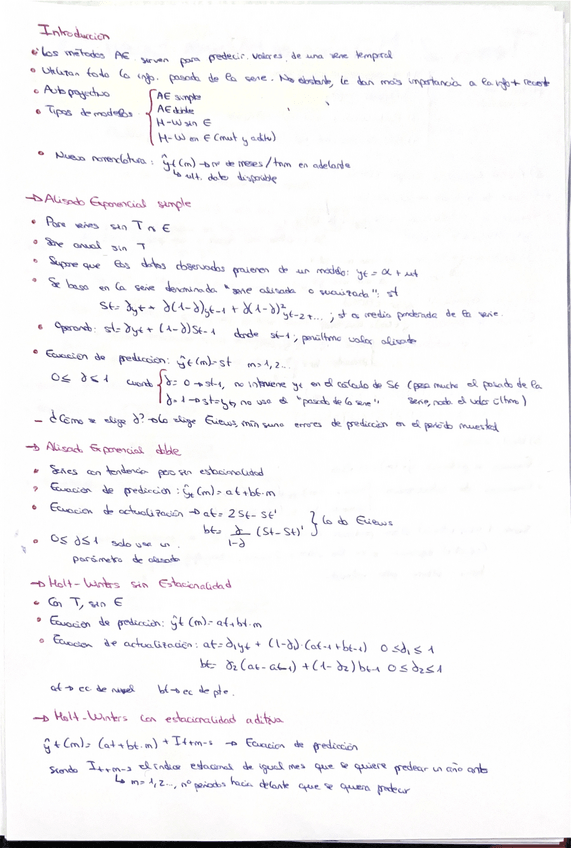 Introducción
• Los métodos AE sirven para predecir valores de una serie temporal
• Utilizan toda la info. pasada de la serie. No obstante, le dan más importancia a la info + reciente
• Autoproyectivo
• Tipos de modelos { AE simple
AE doble
H-W sin E
H-W con E (mult y aditiv)
• Nueva nomenclatura: ŷt(m) → nº de meses/trim en adelante
↳ ult. dato disponible
→ Alisado Exponencial simple
• Para series sin T n E
• Serie anual sin T
• Supone que los datos observados provienen de un modelo: yt = α + ut
• Se basa en la serie denominada "serie alisada o suavizada": st
St = ∂yt + ∂(1-∂)yt-1 + ∂(1-∂)²yt-2+...; st es media ponderada de la serie
• Operando: st = ∂yt + (1-∂)St-1 donde st-1; penúltimo valor alisado
• Ecuación de predicción: ŷt(m) = st m = 1, 2...
0 ≤ ∂ ≤ 1 cuando { ∂ = 0 → st-1, no interviene yt en el cálculo de St (pesa mucho el pasado de la
∂ = 1 → st = yt, no usa el "pasado de la serie" serie, nada el valor último)
– ¿Cómo se elige ∂? → Lo elige Eviews, min suma errores de predicción en el periodo muestral
→ Alisad. Exponencial doble
• Series con tendencia pero sin estacionalidad
• Ecuación de predicción: ŷt(m) = at + bt·m
• Ecuación de actualización → at = 2St - St'
bt = ∂/1-∂ (St - St)' } Lo da Eviews
• 0 ≤ ∂ ≤ 1 solo usa un
parámetro de alisado
→ Holt-Winters sin Estacionalidad
• Con T, sin E
• Ecuación de predicción: ŷt(m) = at + bt·m
• Ecuación de actualización: at = ∂1yt + (1-∂1)·(at-1 + bt-1) 0 ≤ ∂1 ≤ 1
bt = ∂2(at - at-1) + (1-∂2)bt-1 0 ≤ ∂2 ≤ 1
at → ec de nivel bt → ec de pte.
→ Holt-Winters con estacionalidad aditiva
ŷt(m) = (at + bt·m) + It+m-s → Ecuación de predicción
siendo It+m-s el índice estacional de igual mes que se quiere predecir un año antes
↳ m = 1, 2..., nº periodos hacia delante que se quiera predecir